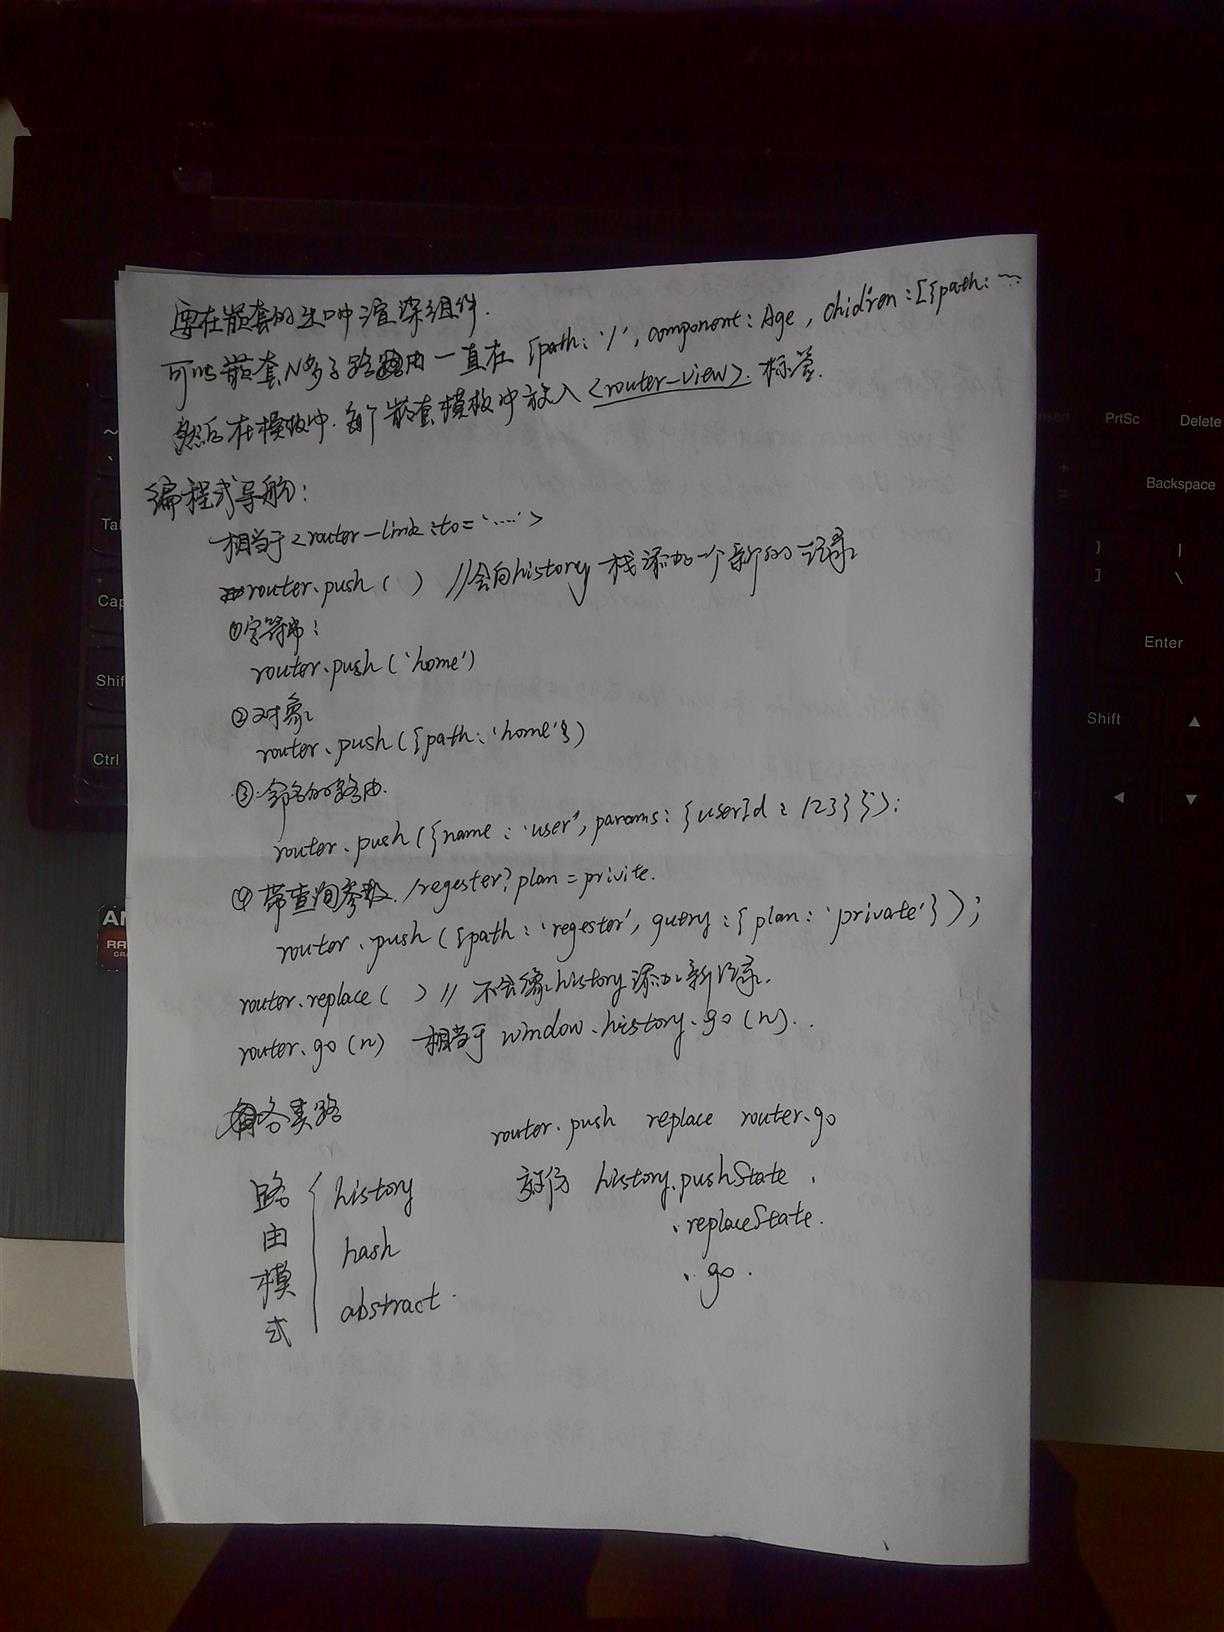 要在嵌套的出口中渲染组件.
可以嵌套N多子路由 一直在 {path: '/', component: Age, children: [{path: ...
然后在模板中. 每个嵌套模板中放入 <router-view>. 标签.
编程式导航:
相当于 <router-link :to='.....'>
router.push( ) //会向history 栈添加一个新的记录
①字符串:
router.push('home')
②对象
router.push({path: 'home'})
③.命名的路由.
router.push({name: 'user', params: {userId: 123}});
④带查询参数. /regester?plan=privite.
router.push({path: 'regester', qutry: {plan: 'private'}});
router.replace( ) // 不会像history添加新记录.
router.go(n) 相当于 window.history.go(n)..
router.push replace router.go
效仿 history.pushState.
.replaceState.
.go.
路由模式
history
hash
abstract.
PrtSc
Delete
Backspace
Enter
Shift
Ctrl